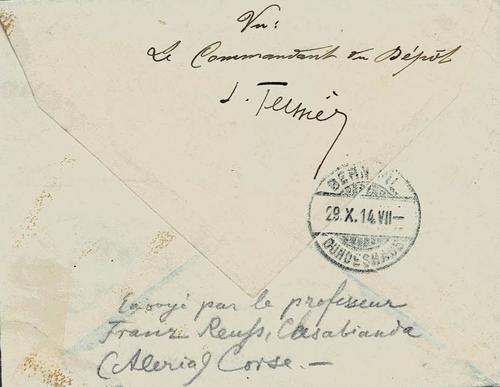 Vu:
Le Commandant du Dépôt
BERN
29.X.14.VII—
BUNDESHAUS
Envoyé par le professeur
Franz Reuß, Casabianda
(Aleria) Corse. —